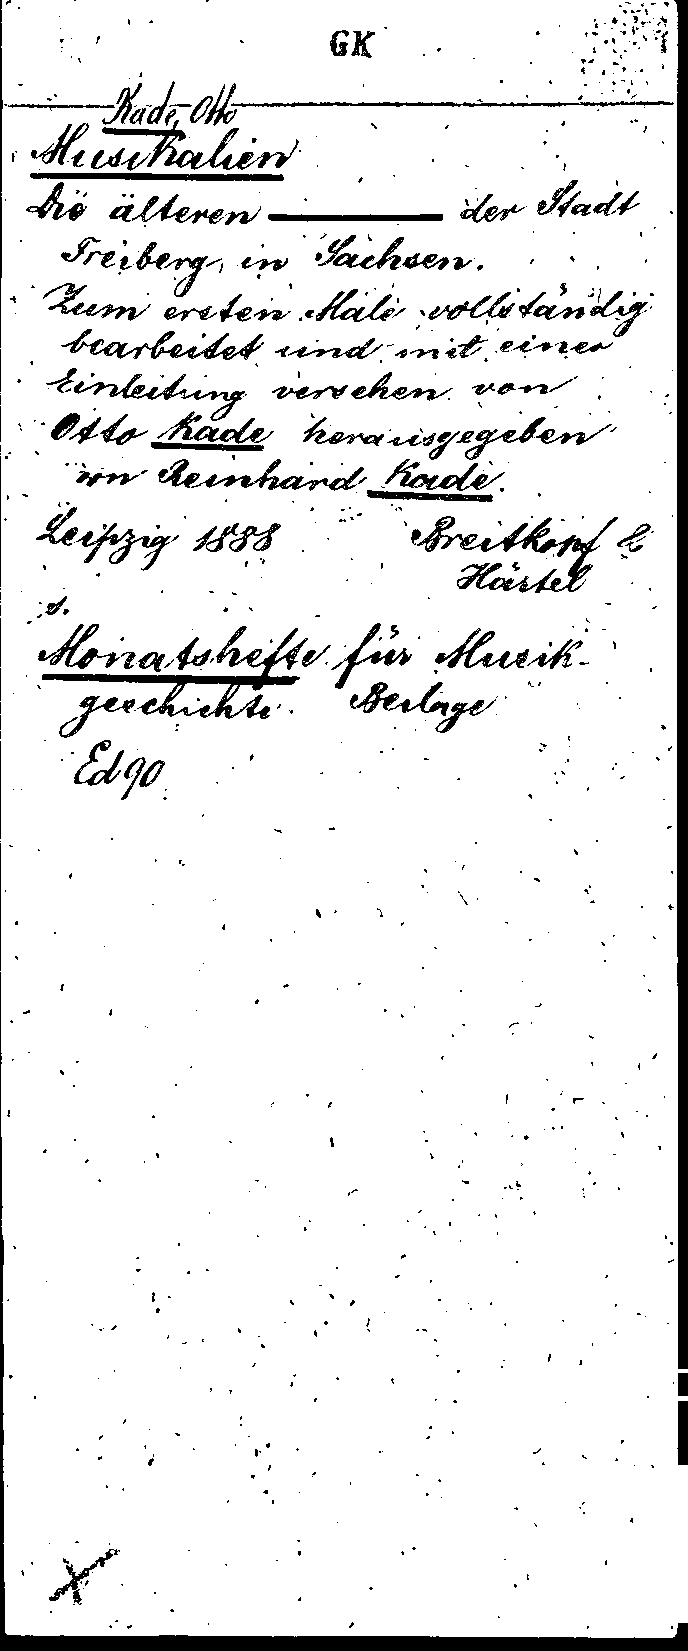 GK
Kade, Otto
Musikalien
Die älteren ———— der Stadt
Freiberg, in Sachsen.
Zum ersten Male vollständig
bearbeitet und mit einer
Einleitung versehen von
Otto Kade herausgegeben
von Reinhard Kade.
Leipzig 1888 Breitkopf &
Härtel
s.
Monatshefte für Musik-
geschichte. Beilage
Ed 90